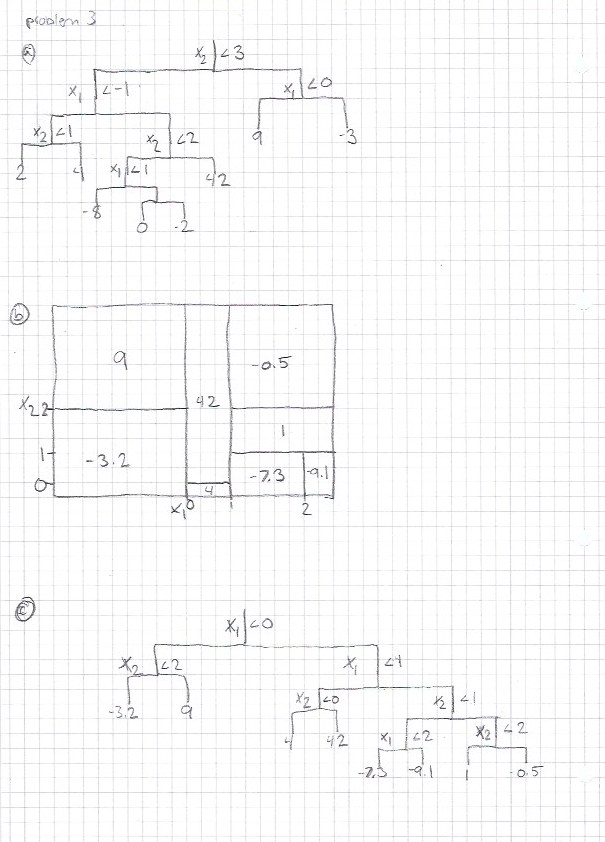 problem 3
a
x2 <3
x1 <-1 x1 <0
x2 <1 x2 <2 9 -3
2 4 x1 <1 42
-8 0 -2
b
9 -0.5
x2 2 42
1
1 -3.2 -7.3 -9.1
0 4
x1 0 1 2
c
x1 <0
x2 <2 x1 <1
-3.2 9 x2 <0 x2 <1
4 42 x1 <2 x2 <2
-7.3 -9.1 1 -0.5